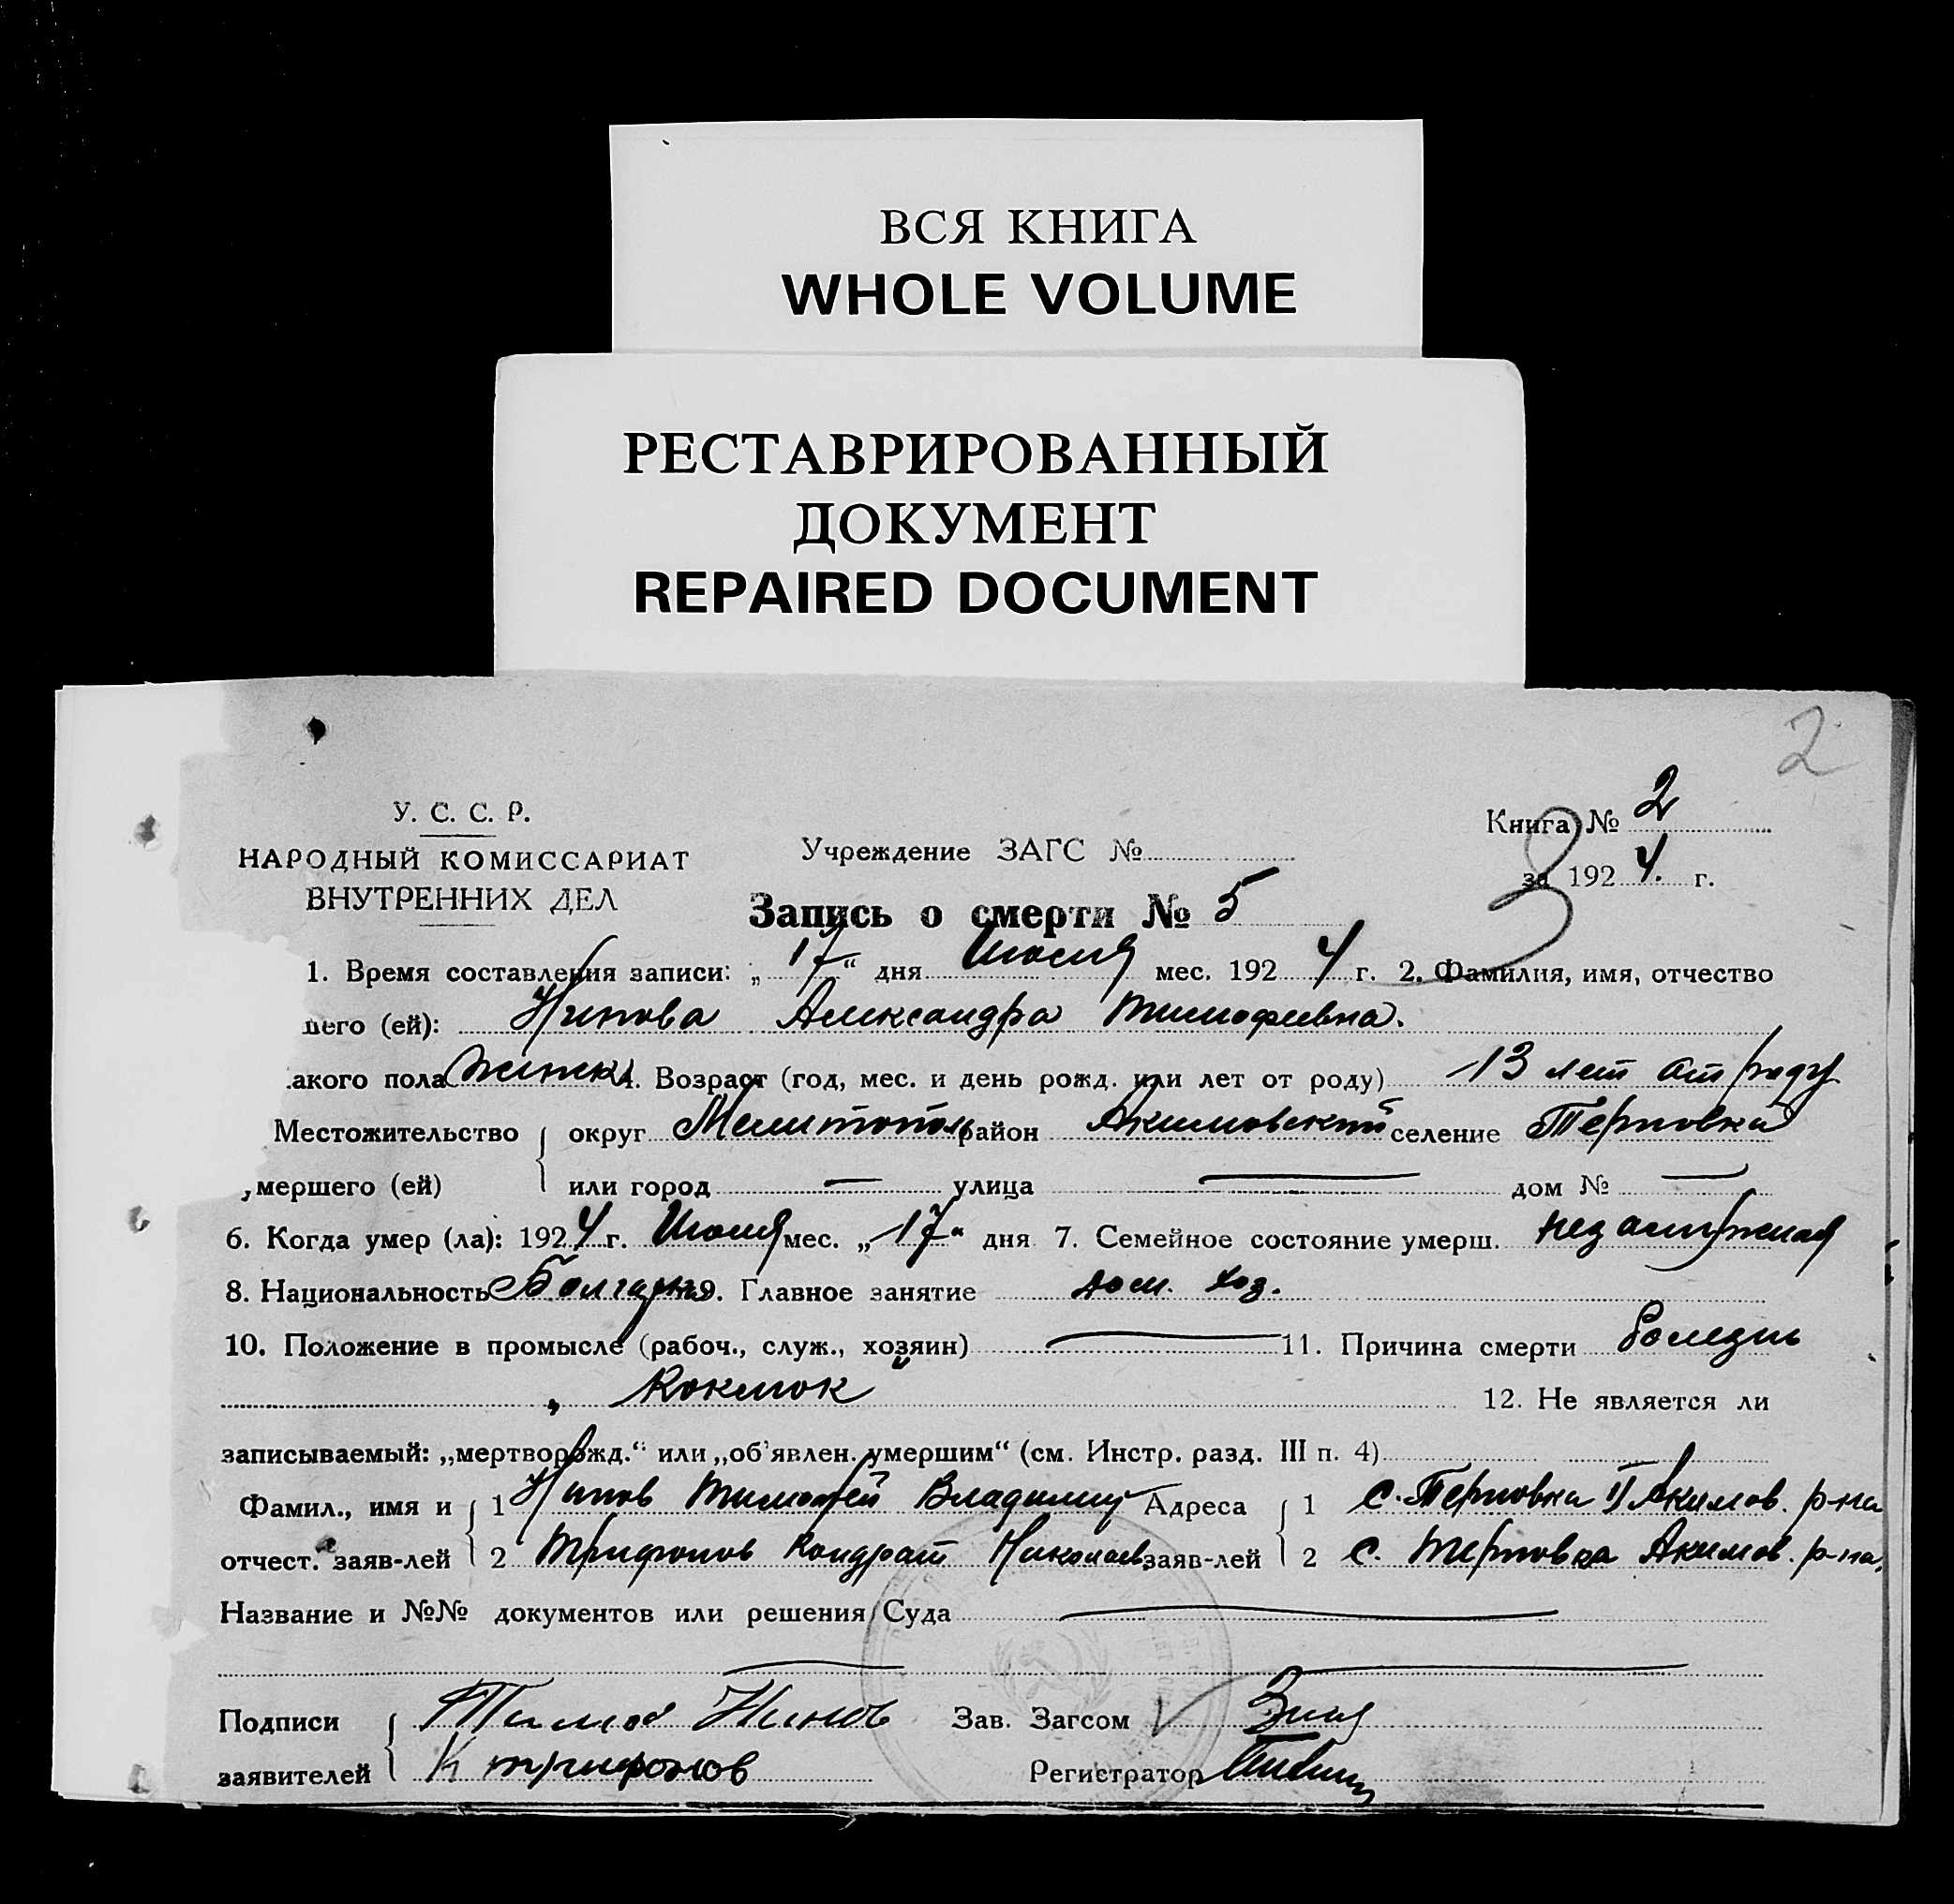 ВСЯ КНИГА
WHOLE VOLUME
РЕСТАВРИРОВАННЫЙ
ДОКУМЕНТ
REPAIRED DOCUMENT
2
У. С. С. Р.
НАРОДНЫЙ КОМИССАРИАТ
ВНУТРЕННИХ ДЕЛ
Учреждение ЗАГС №
Книга № 2
3
за 1924. г.
Запись о смерти № 5
1. Время составления записи: „17“ дня Июля мес. 1924 г. 2. Фамилия, имя, отчество
шего (ей): Нинова Александра Тимофеевна.
акого пола женск 4. Возраст (год, мес. и день рожд. или лет от роду) 13 лет от роду
Местожительство округ Мелитополь район Акимовский селение Терновка
мершего (ей) или город — улица — дом № —
6. Когда умер (ла): 1924 г. Июля мес. „17“ дня 7. Семейное состояние умерш. незамужная
8. Национальность Болгарка 9. Главное занятие дом. хоз.
10. Положение в промысле (рабоч., служ., хозяин) — 11. Причина смерти болезнь
„Коклюк“ 12. Не является ли
записываемый: „мертворожд.“ или „об'явлен. умершим“ (см. Инстр. разд. III п. 4)
Фамил., имя и 1 Нинов Тимофей Владимир Адреса 1 с. Терновка II Акимов. р-на
отчест. заяв-лей 2 Трифонов Кондрат Николаев. заяв-лей 2 с. Терновка Акимов. р-на.
Название и №№ документов или решения Суда —
Подписи Тимоф Нинов Зав. Загсом
заявителей К Трифонов Регистратор